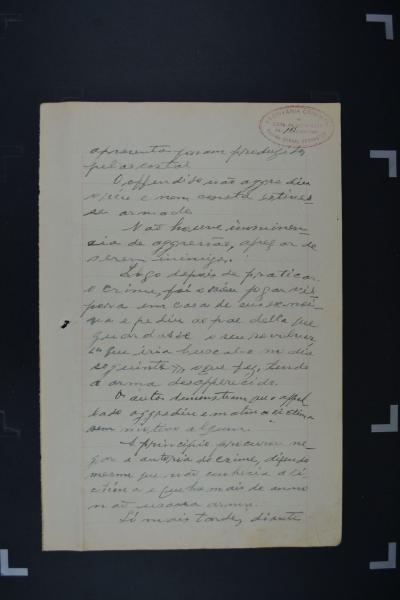 apresenta foram produzidos
pelas costas
O offendido não aggrediu
o reu e nem consta estives-
se armado.
Não houve imminen-
cia de aggressão, apezar de
serem inimigos.
Logo depois de praticar
o crime, foi o réu jogar vis-
pora em casa de sua
e pediu ao pae della que
guardasse o seu revolver
que iria buscal-o no dia
seguinte, o que fez, tendo
a arma desapparecido.
Os autos demonstram que o appel-
lado aggrediu e matou a victima
sem motivo algum.
A principio procurou ne-
gar a autoria do crime, dizendo
mesmo que não conhecia a vi-
ctima e que ha mais de anno
não usava arma.
Só mais tarde, diante